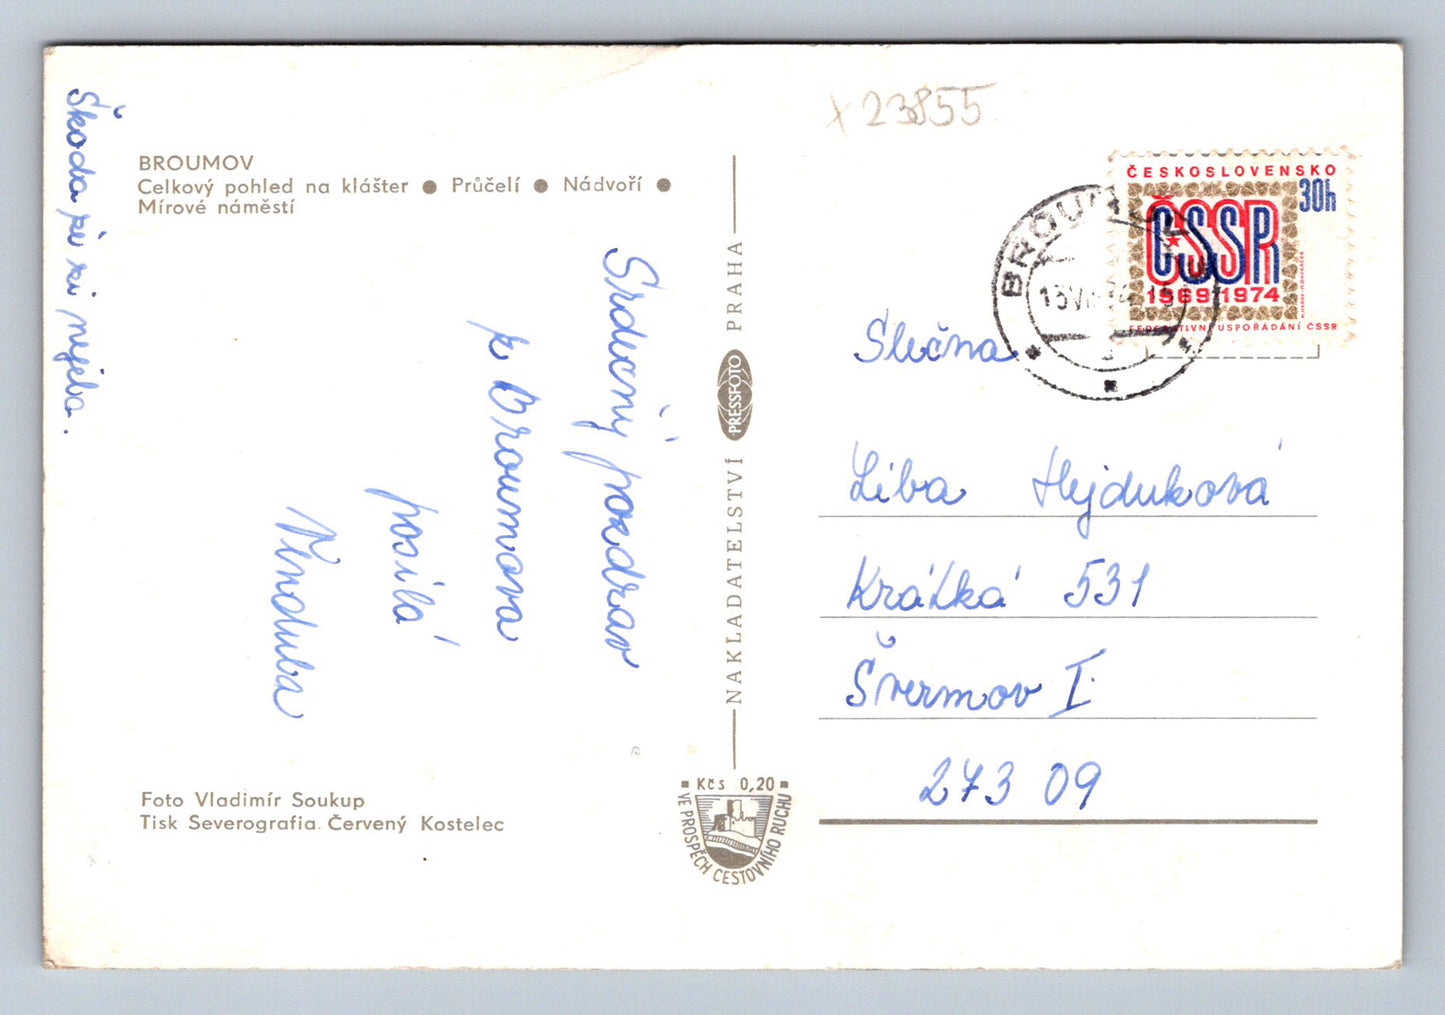 x 23855
BROUMOV
Celkový pohled na klášter ● Průčelí ● Nádvoří ●
Mírové náměstí
Škoda
Srdečný pozdrav
z Broumova
posílá
Foto Vladimír Soukup
Tisk Severografia Červený Kostelec
NAKLADATELSTVÍ PRESSFOTO PRAHA
Kčs 0,20
VE PROSPĚCH CESTOVNÍHO RUCHU
ČESKOSLOVENSKO
30h
ČSSR
1969 1974
FEDERATIVNÍ USPOŘÁDÁNÍ ČSSR
Slečna
Liba Hejduková
Krátká 531
Švermov I.
273 09